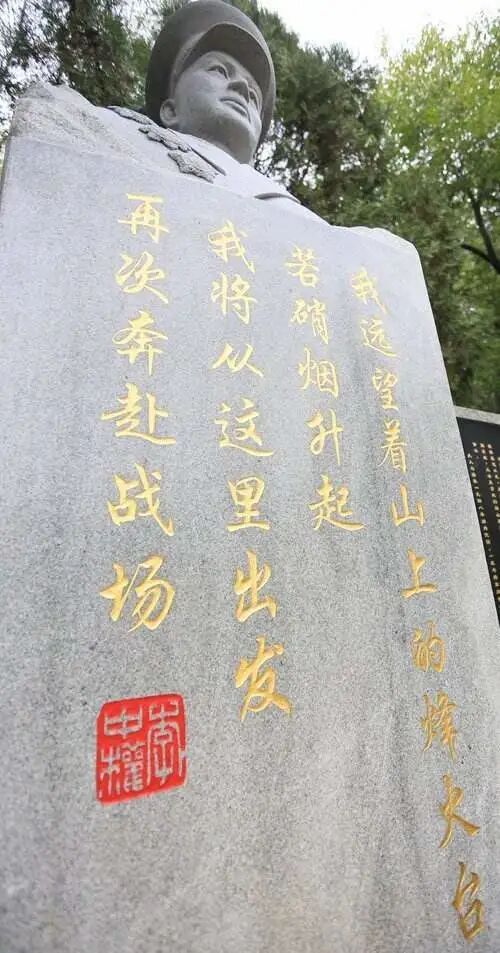 我远望着山上的烽火台
若硝烟升起
我将从这里出发
再次奔赴战场
李中權